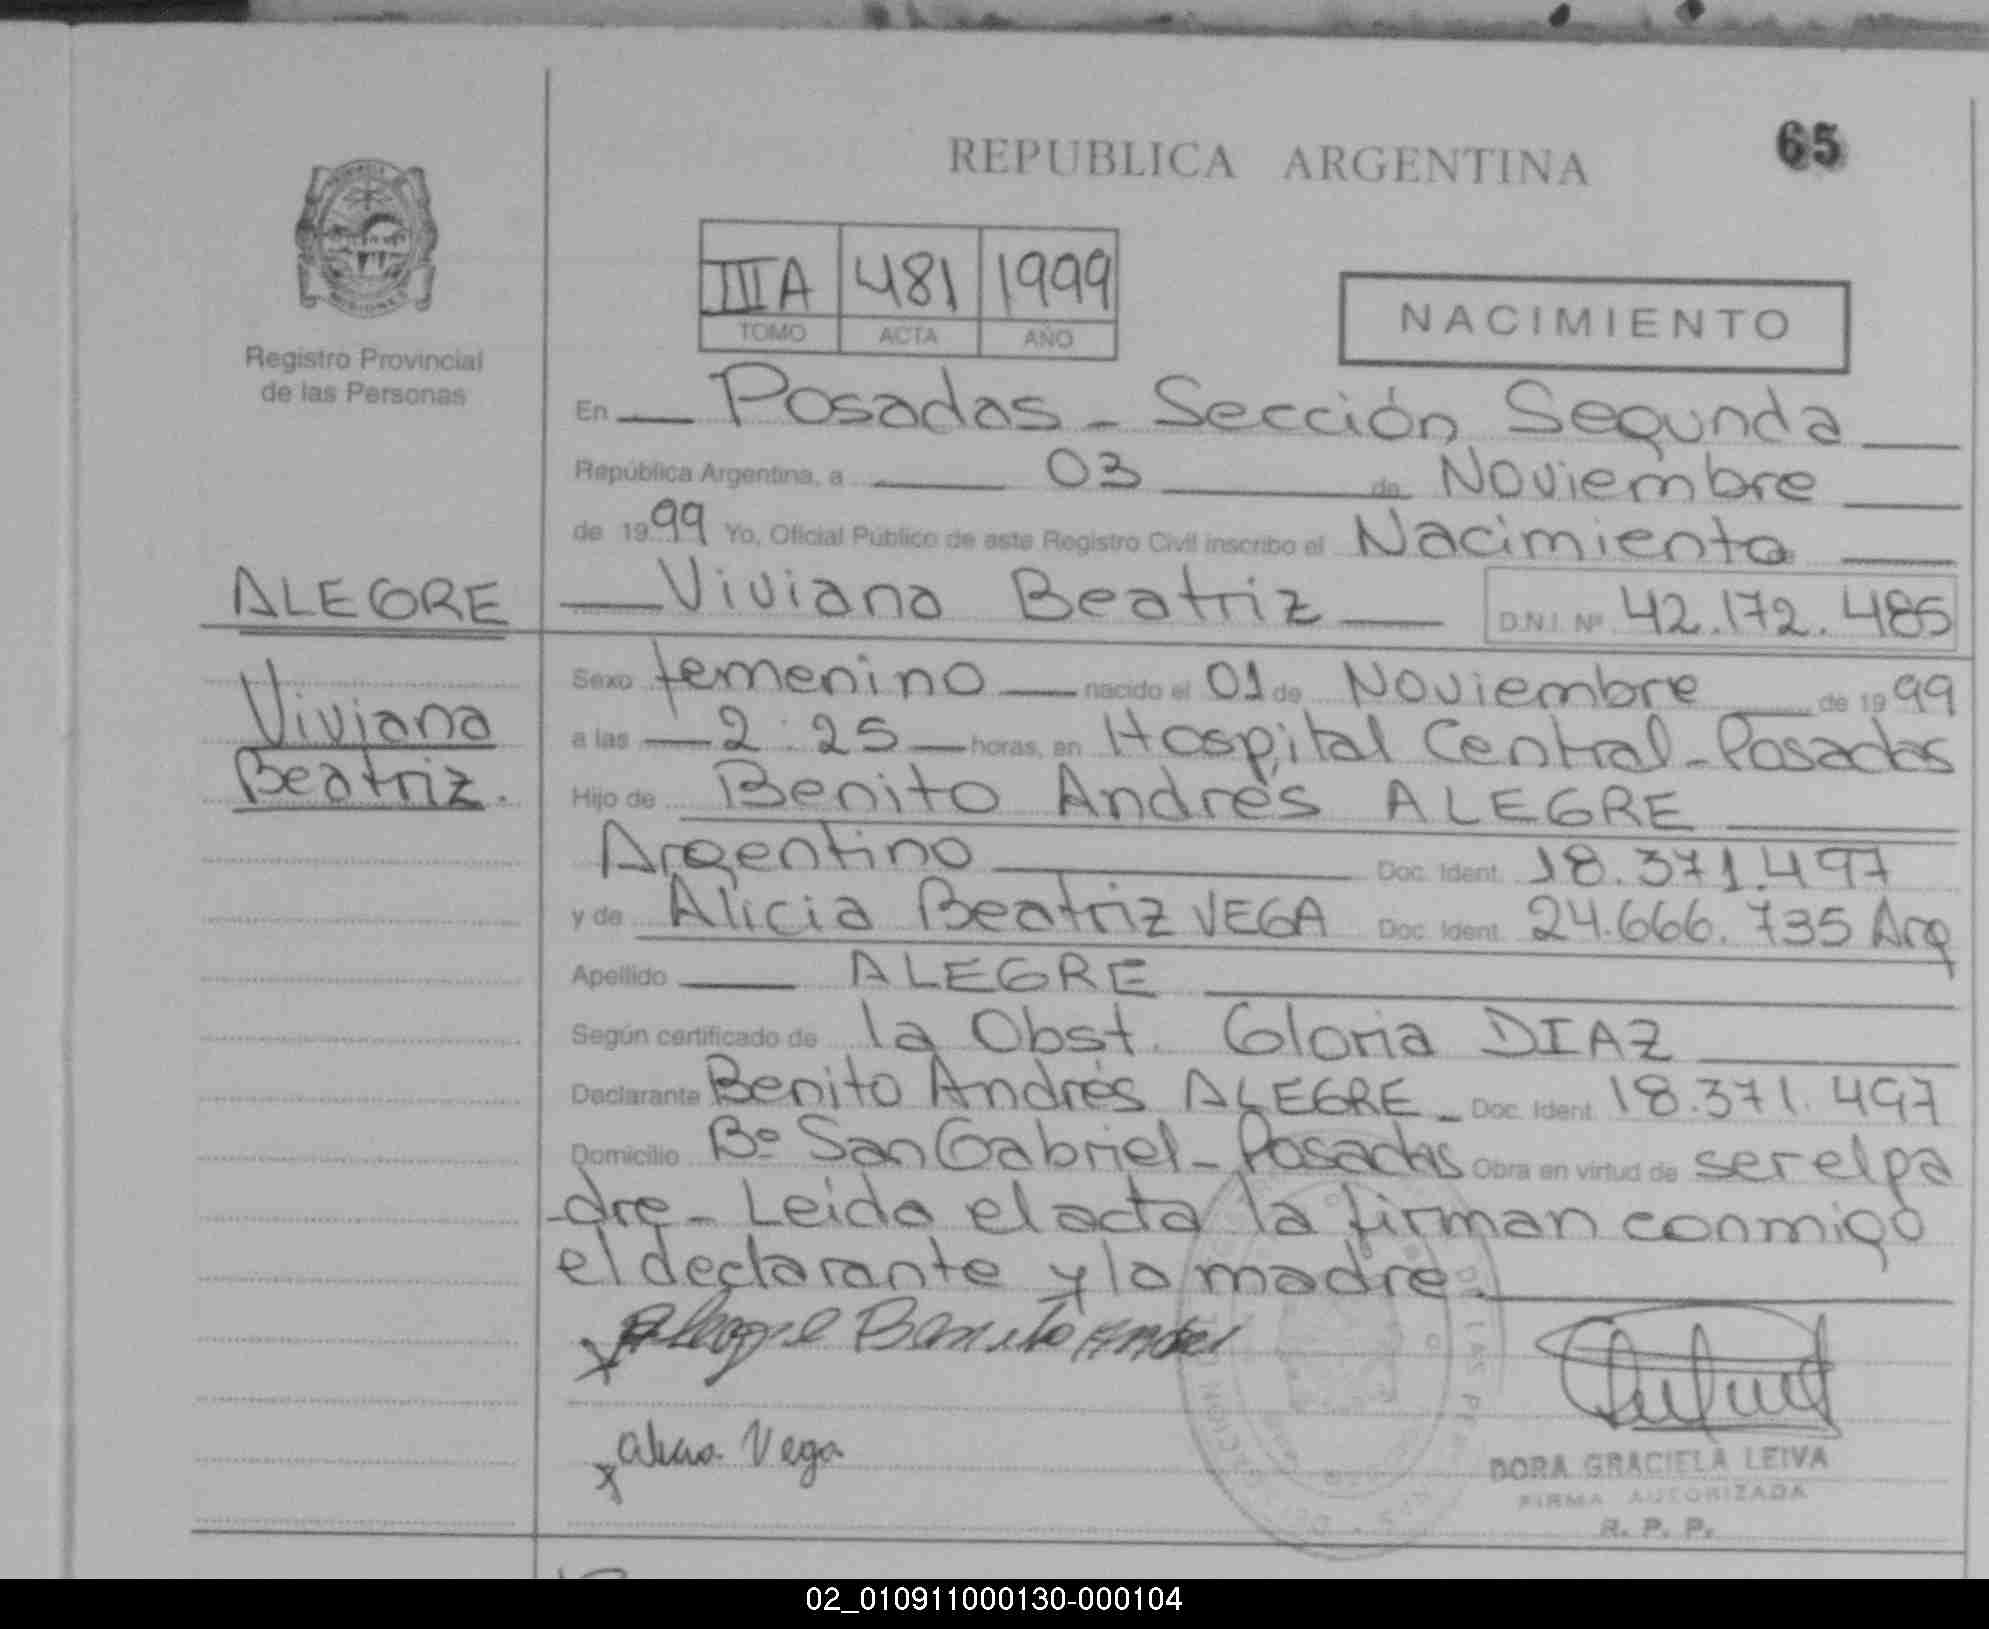 REPUBLICA ARGENTINA
65
IIIA 481 1999
TOMO ACTA AÑO
NACIMIENTO
Registro Provincial
de las Personas
En Posadas - Sección Segunda
República Argentina, a 03 de Noviembre
de 1999 Yo, Oficial Público de este Registro Civil inscribo el Nacimiento
ALEGRE
Viviana Beatriz D.N.I. Nº 42.172.485
Viviana
Beatriz.
Sexo femenino nacido el 01 de Noviembre de 1999
a las 2:25 horas, en Hospital Central - Posadas
Hijo de Benito Andrés ALEGRE
Argentino Doc. Ident. 18.371.497
y de Alicia Beatriz VEGA Doc. Ident. 24.666.735 Arg
Apellido ALEGRE
Según certificado de la Obst. Gloria DIAZ
Declarante Benito Andrés ALEGRE - Doc. Ident. 18.371.497
Domicilio Bº San Gabriel - Posadas Obra en virtud de ser el pa
-dre - Leida el acta la firman conmigo
el declarante y la madre.
x Alegre Benito Andres
x Alicia Vega
DORA GRACIELA LEIVA
FIRMA AUTORIZADA
R. P. P.
02_010911000130-000104